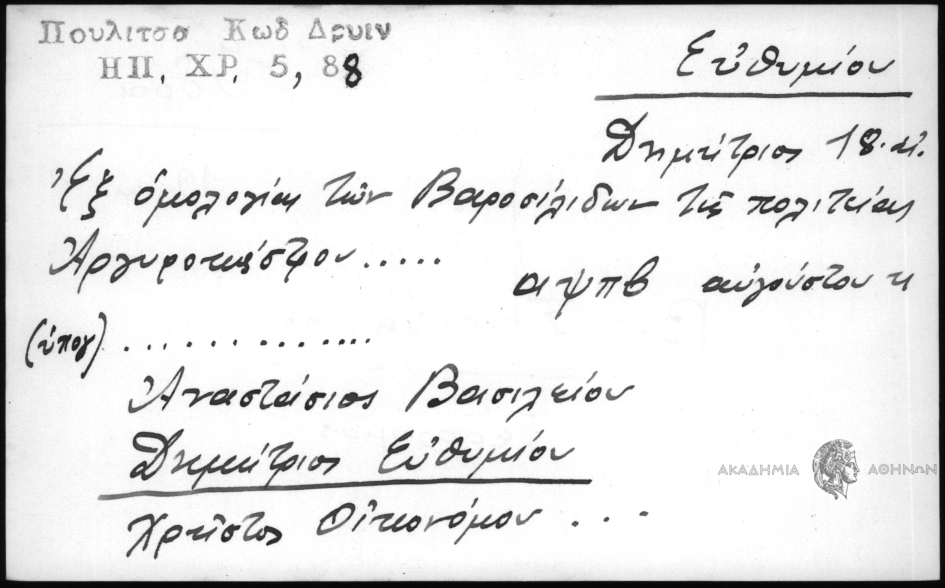 Πουλιτσα Κωδ Δρυιν
ΗΠ. ΧΡ. 5, 88
Εὐθυμίου
Δημήτριος 18. αἰ.
Ἐξ ὁμολογίας τῶν Βαροσιλίδων τῆς πολιτείας
Ἀργυροκάστρου.....
αψπβ αὐγούστου η
(ὑπογ) .............
Ἀναστάσιος Βασιλείου
Δημήτριος Εὐθυμίου
Χρῆστος Οἰκονόμου ...
ΑΚΑΔΗΜΙΑ ΑΘΗΝΩΝ